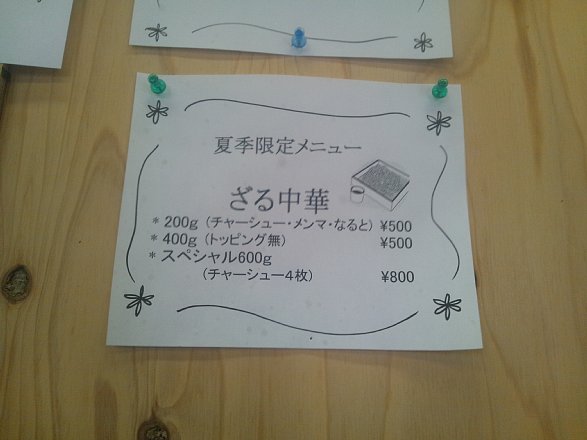 夏季限定メニュー
ざる中華
* 200g (チャーシュー・メンマ・なると) ¥500
* 400g (トッピング無) ¥500
* スペシャル600g
(チャーシュー4枚) ¥800